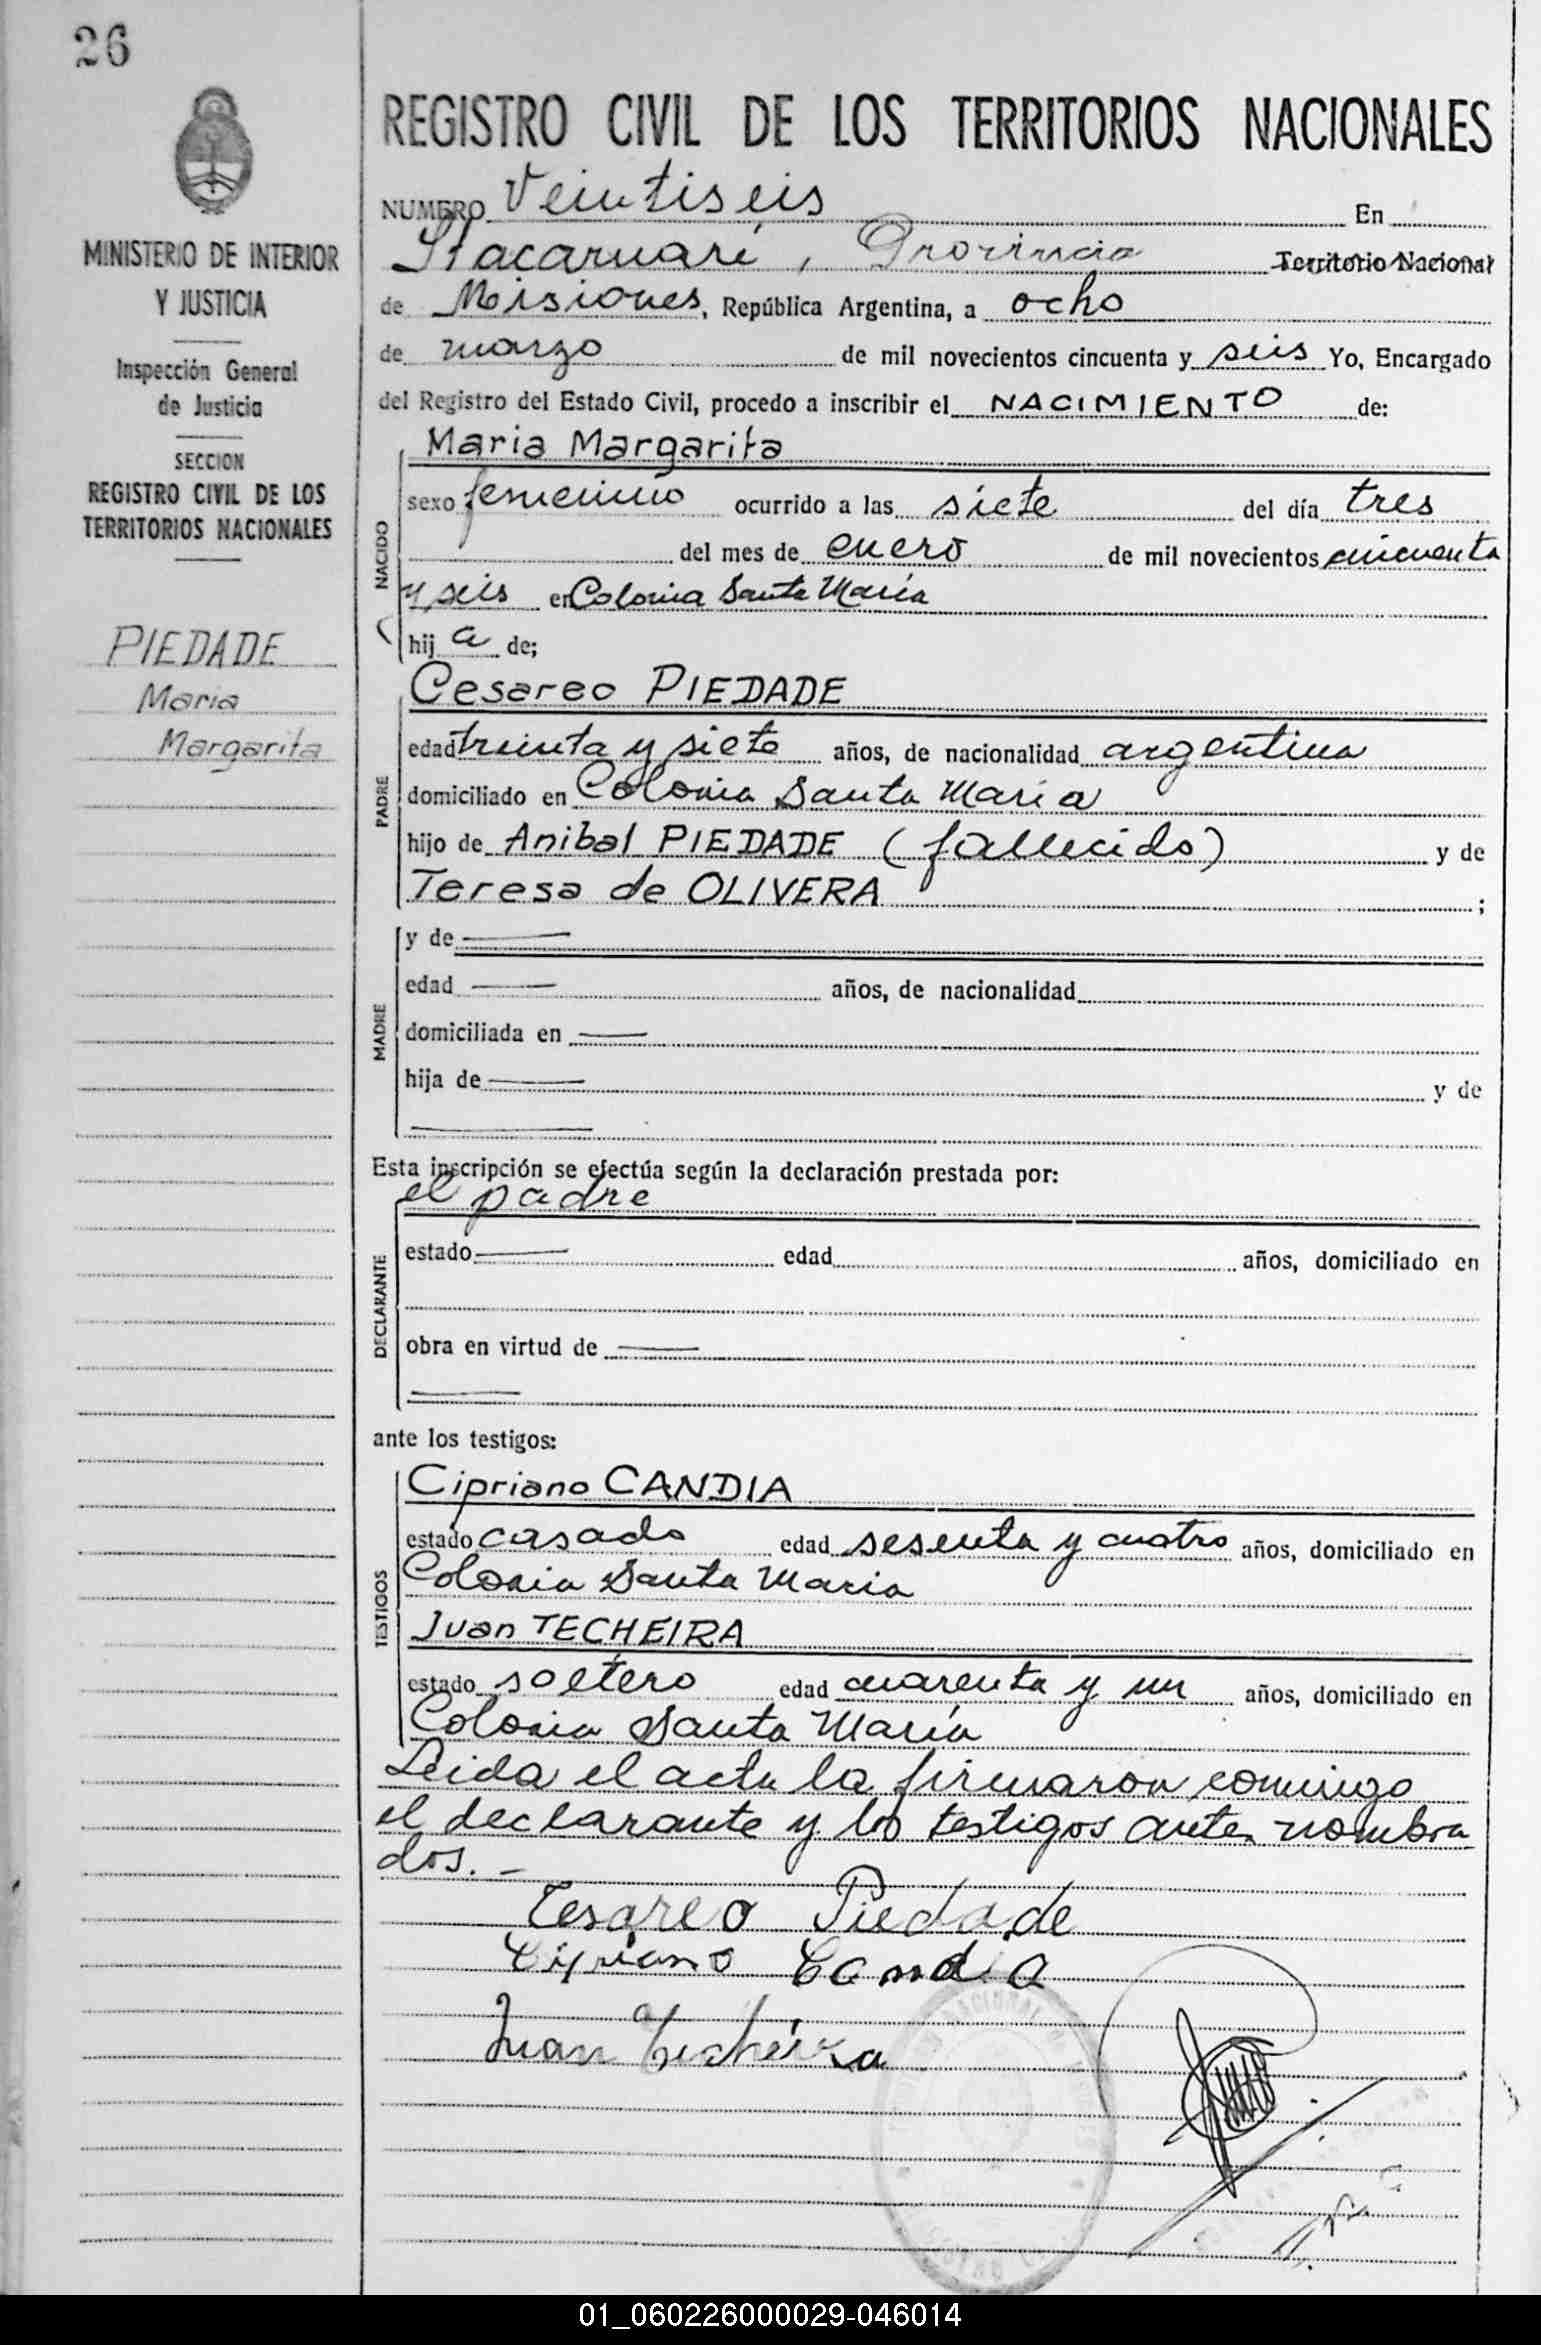 26
MINISTERIO DE INTERIOR
Y JUSTICIA
Inspección General
de Justicia
SECCION
REGISTRO CIVIL DE LOS
TERRITORIOS NACIONALES
PIEDADE
Maria
Margarita
REGISTRO CIVIL DE LOS TERRITORIOS NACIONALES
NUMERO Veintiseis En
Itacaruaré, Provincia Territorio Nacional
de Misiones, República Argentina, a ocho
de marzo de mil novecientos cincuenta y seis Yo, Encargado
del Registro del Estado Civil, procedo a inscribir el NACIMIENTO de:
NACIDO
Maria Margarita
sexo femenino ocurrido a las siete del día tres
del mes de enero de mil novecientos cincuenta
y seis en Colonia Santa María
hij a de;
PADRE
Cesareo PIEDADE
edad treinta y siete años, de nacionalidad argentina
domiciliado en Colonia Santa María
hijo de Anibal PIEDADE (fallecido) y de
Teresa de OLIVERA ;
MADRE
y de
edad años, de nacionalidad
domiciliada en
hija de y de
Esta inscripción se efectúa según la declaración prestada por:
DECLARANTE
el padre
estado edad años, domiciliado en
obra en virtud de
ante los testigos:
TESTIGOS
Cipriano CANDIA
estado casado edad sesenta y cuatro años, domiciliado en
Colonia Santa Maria
Juan TECHEIRA
estado soltero edad cuarenta y un años, domiciliado en
Colonia Santa María
Leida el acta la firmaron conmigo
el declarante y los testigos antes nombra
dos.-
Cesareo Piedade
Cipriano Candia
Juan Techeira
01_060226000029-046014